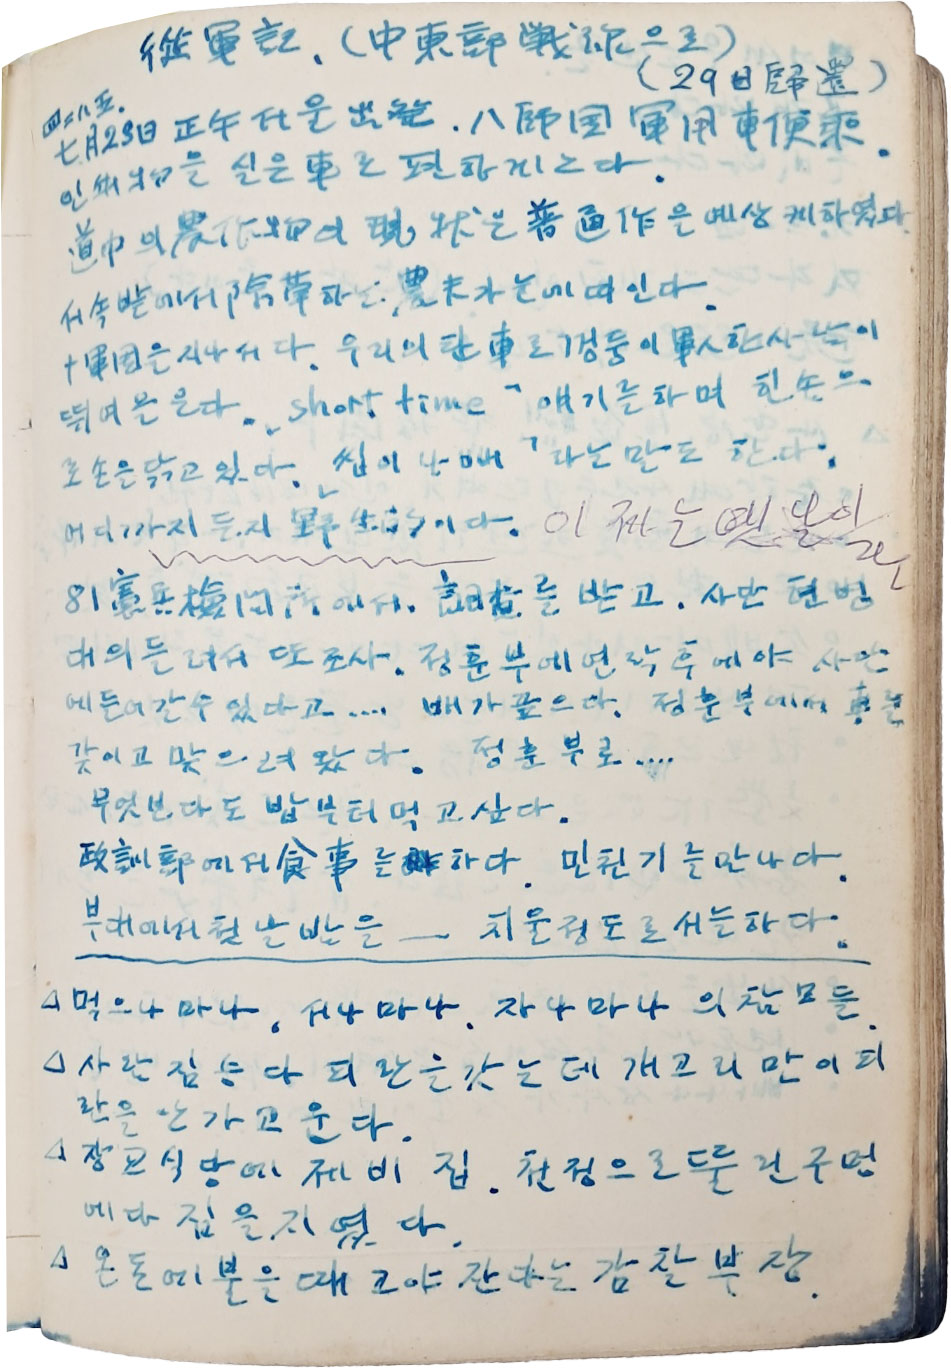 從軍記. (中東部戰線으로)
(29日歸還)
四二八五.
七月23日 正午 서울 出發. 八師團 軍用車便乘.
인쇄物을 실은 車로 편하게 는다.
道中의 農作物의 現狀은 普通作은 예상케하였다.
서속밭에서 除草하는 農夫가 눈에 띠인다.
十軍團을 지나서다. 우리의 탄 車로 껑둥이 軍人 한사람이
뛰여올은다. "short time" 얘기를 하며 한손으
로 손을 닦고 있다. "씹이 나빼" 라는 말도 한다.
어디까지든지 野生的이다. 이제는 옛 날일
81憲兵檢問所에서. 調査를 받고. 사단 헌병
대의 들려서 또 조사. 정훈부에 연락후에야 사단
에 들어갈수 있다고 .... 배가 곺으다. 정훈부에서 車를
갖이고 맞으려 왔다. 정훈부로 ....
무엇보다도 밥부터 먹고 싶다.
政訓部에서 食事를 하다. 민천기를 만나다.
부대에서 첫날 밤을 — 치물정도로 서늘하다.
△ 먹으나 마나, 서나 마나. 자나 마나 의 참모들.
△ 사람 짐승 다 피란을 갔는데 개고리만이 피
란을 안가고 운다.
△ 장교식당에 제비 집. 천정으로 뚤린 구멍
에다 집을 지였다.
△ 온돌에 불을 때고야 잔다는 감찰부장.